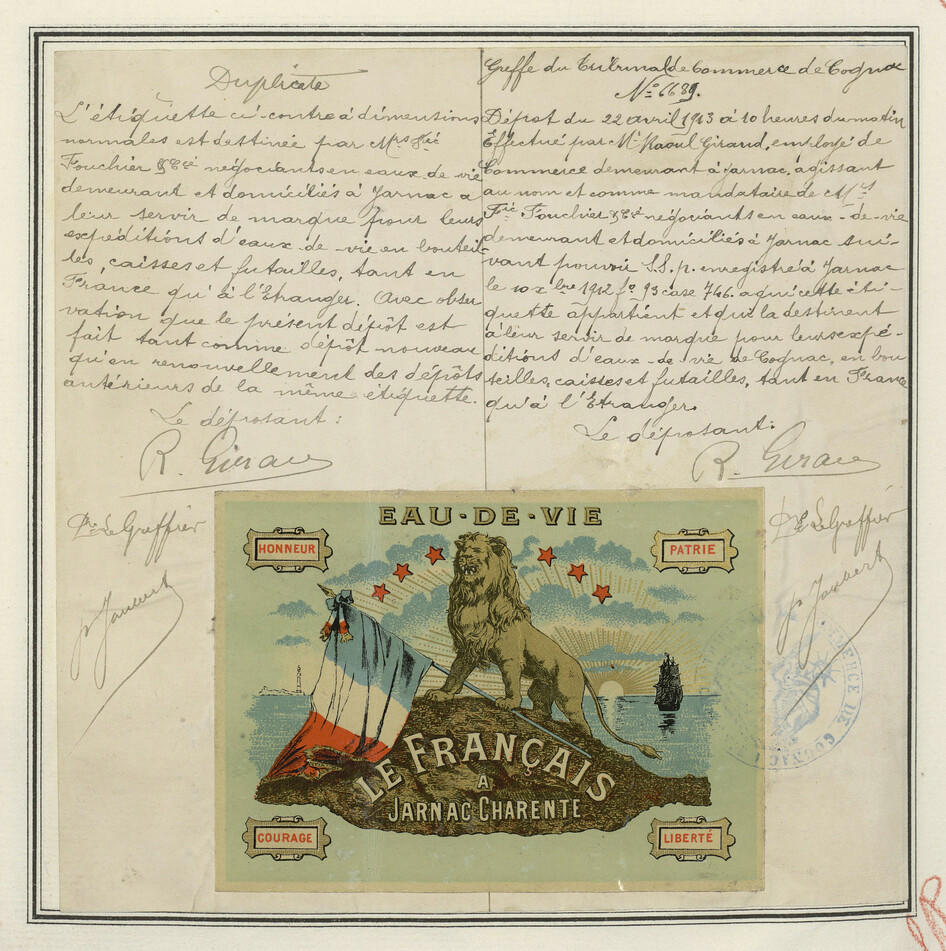 Duplicata
L'étiquette ci-contre à dimensions
normales est destinée par Mrs Fréd
Fouchier & Cie négociants en eaux-de-vie
demeurant et domiciliés à Jarnac à
leur servir de marque pour leurs
expéditions d'eaux-de-vie en bouteil-
les, caisses et futailles, tant en
France qu'à l'Etranger. Avec obser
vation que le présent dépôt est
fait tant comme dépôt nouveau
qu'en renouvellement des dépôts
antérieurs de la même étiquette.
Le déposant:
R. Giraud
Pr Le Greffier
Greffe du Tribunal de Commerce de Cognac
No 6689.
Dépôt du 22 avril 1913 à 10 heures du matin
Effectué par Mr Raoul Giraud, employé de
Commerce demeurant à Jarnac, agissant
au nom et comme mandataire de Mrs
Fouchier & Cie négociants en eaux-de-vie
demeurant et domiciliés à Jarnac sui-
vant pouvoir S.S.p. enregistré à Jarnac
le 10 xbre 1912 fo 93 case 746. à qui cette éti-
quette appartient et qui la destinent
à leur servir de marque pour leurs expé-
ditions d'eaux-de-vie de Cognac, en bou
teilles, caisses et futailles, tant en France
qu'à l'Etranger.
Le déposant:
R. Giraud
Pr Le Greffier
EAU-DE-VIE
HONNEUR
PATRIE
LE FRANÇAIS
A
JARNAC-CHARENTE
COURAGE
LIBERTÉ